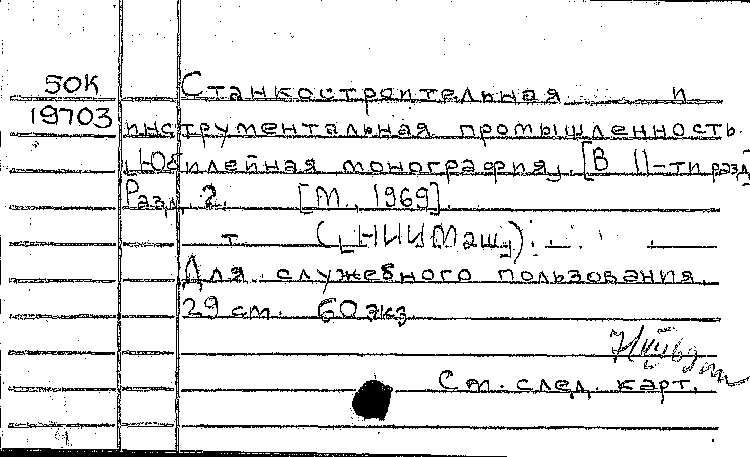 50К Станкостроительная и
19703 инструментальная промышленность.
[Юбилейная монография]. [В 11-ти разд]
Разд. 2. [М., 1969].
т ([НИИМаш]).
Для служебного пользования.
29 см. 60 экз.
См. след. карт.